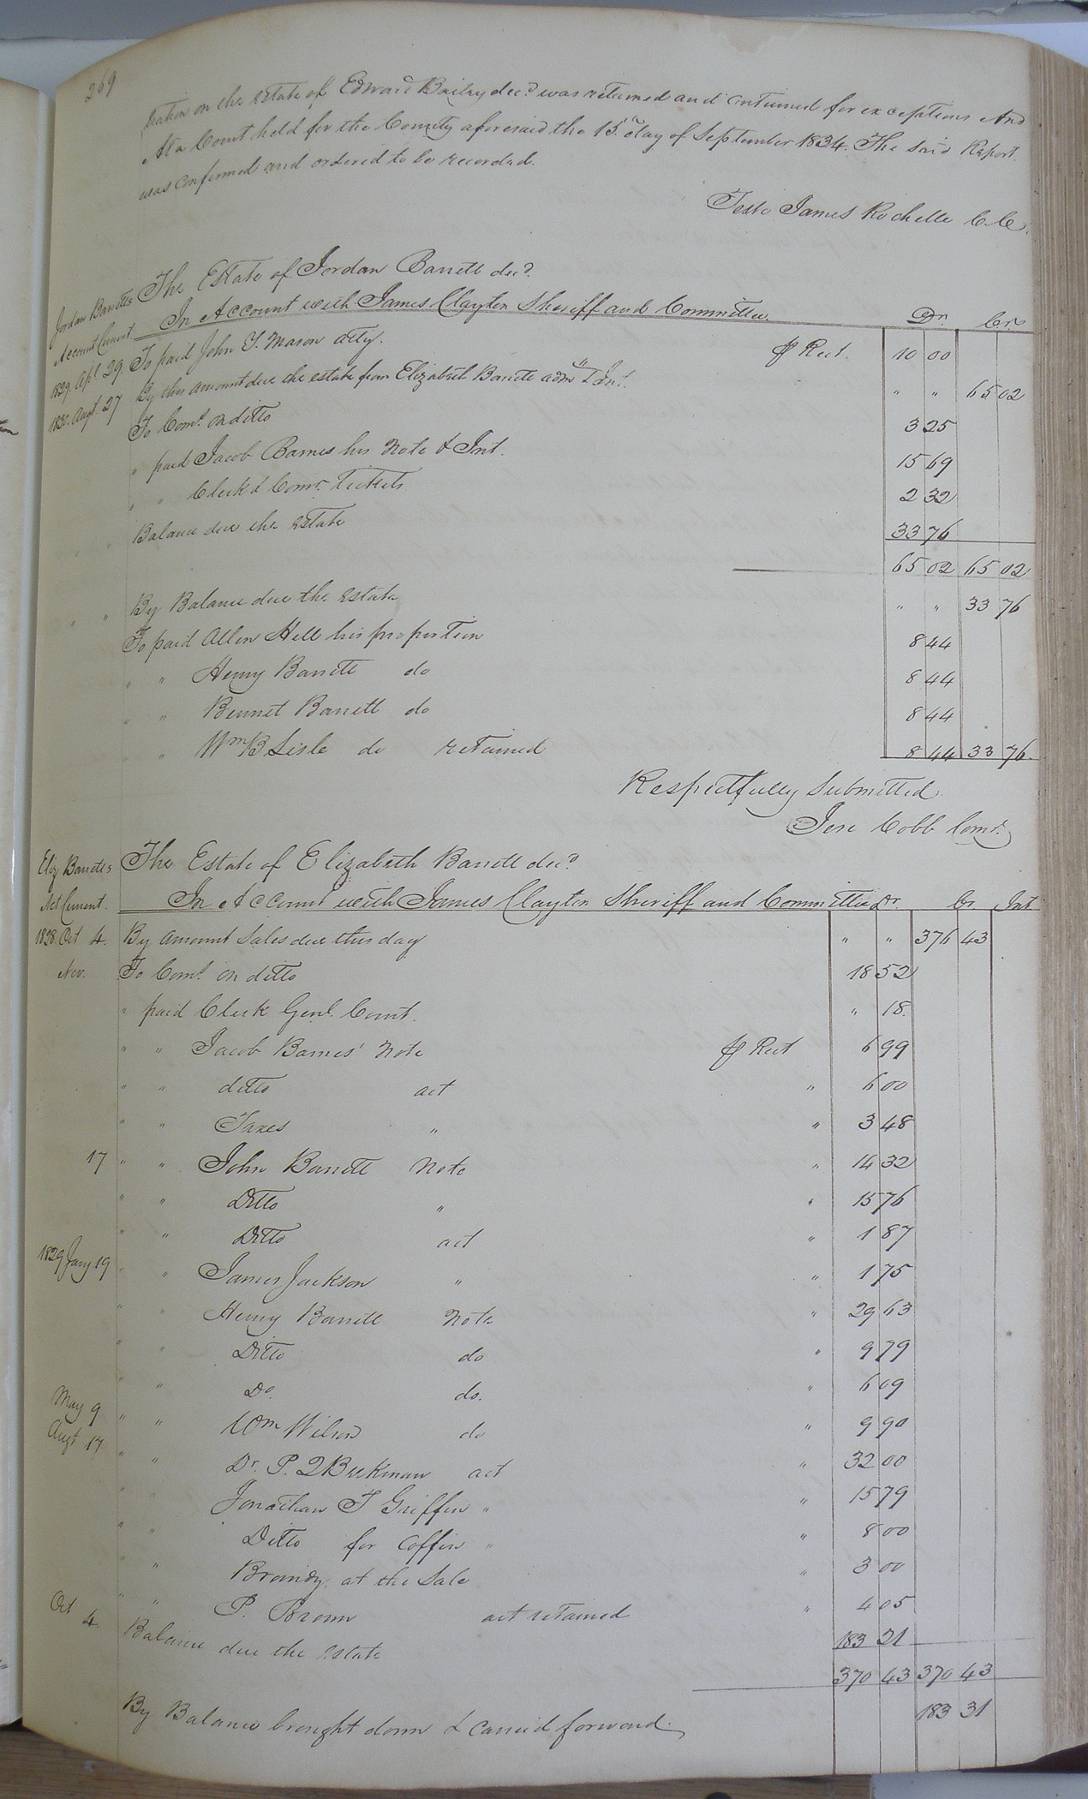 269
tration on the estate of Edward Bailey decd was returned and continued for exceptions And
At a Court held for the County aforesaid the 15th day of September 1834. The said Report
was confirmed and ordered to be recorded.
Teste James Rochelle C.C.
Jordan Barretts The Estate of Jordan Barrett decd.
Account Current In Account with James Clayton Sheriff and Committee Dr. Cr.
1829 Apl 29 To paid John Y. Mason atty. ⅌ Rect. 10 00
1830 Augt 27 By this amount due the estate from Elizabeth Barrett admx & Int. " " 65 02
To Coms. on ditto 3 25
" paid Jacob Barnes his Note & Int. 15 69
" " Clerk & Comr. Tickets 2 32
" " Balance due the Estate 33 76
65 02 65 02
" " By Balance due the Estate " " 33 76
To paid Allen Hill his proportion 8 44
" " Henry Barrett do 8 44
" " Bennet Barrett do 8 44
" Wm B Lisle do retained 8 44 33 76
Respectfully Submitted
Jere Cobb Comr.
Eliz Barretts The Estate of Elizabeth Barrett decd
Act Current. In Account with James Clayton Sheriff and Committee Dr. Cr Int
1828 Oct 4. By amount Sales due this day " " 376 43
Nov. To Coms. on ditto 18 52
" paid Clerk Genl. Court. " 18.
" " Jacob Barnes' Note ⅌ Rect 6 99
" " ditto act " 6 00
" " Taxes " " 3 48
17 " " John Barrett Note " 14 32
" " Ditto " " 15 76
" " Ditto act " 1 87
1829 Jany 19 " " James Jackson " " 1 75
" " Henry Barrett Note " 29 63
" " Ditto do " 9 79
" " Do. do. " 6 09
May 9 " " Wm Wilson do " 9 90
Augt 17 " " Dr. P. Q Beekman act " 32 00
Jonathan T Griffin " " 15 79
" " Ditto for Coffin " " 8 00
" " Brandy at the Sale " 3 00
" " P. Brown act retained " 4 05
Oct 4 Balance due the Estate 183 21
370 43 370 43
By Balance brought down & carried forward. 183 31